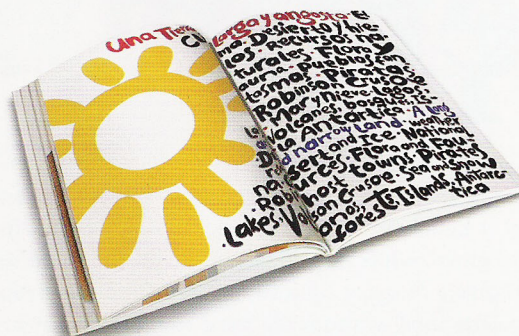 Una Tierra larga y angosta. El
Desierto y hie
los. Recursos na
turales. Flora y
Pueblos fan
tasmas. Piratas
Robinson Crusoe
Mar y nieve. Lagos.
Volcanes, bosques
La Antártica. A long
and narrow Land. weather
Deserts and Ice. National
Flora and Faun
Ghost towns Pirates
Robinson Crusoe. Sea and Snow
.Lakes. Volcanoes
forests. Islands. Antarc
tica